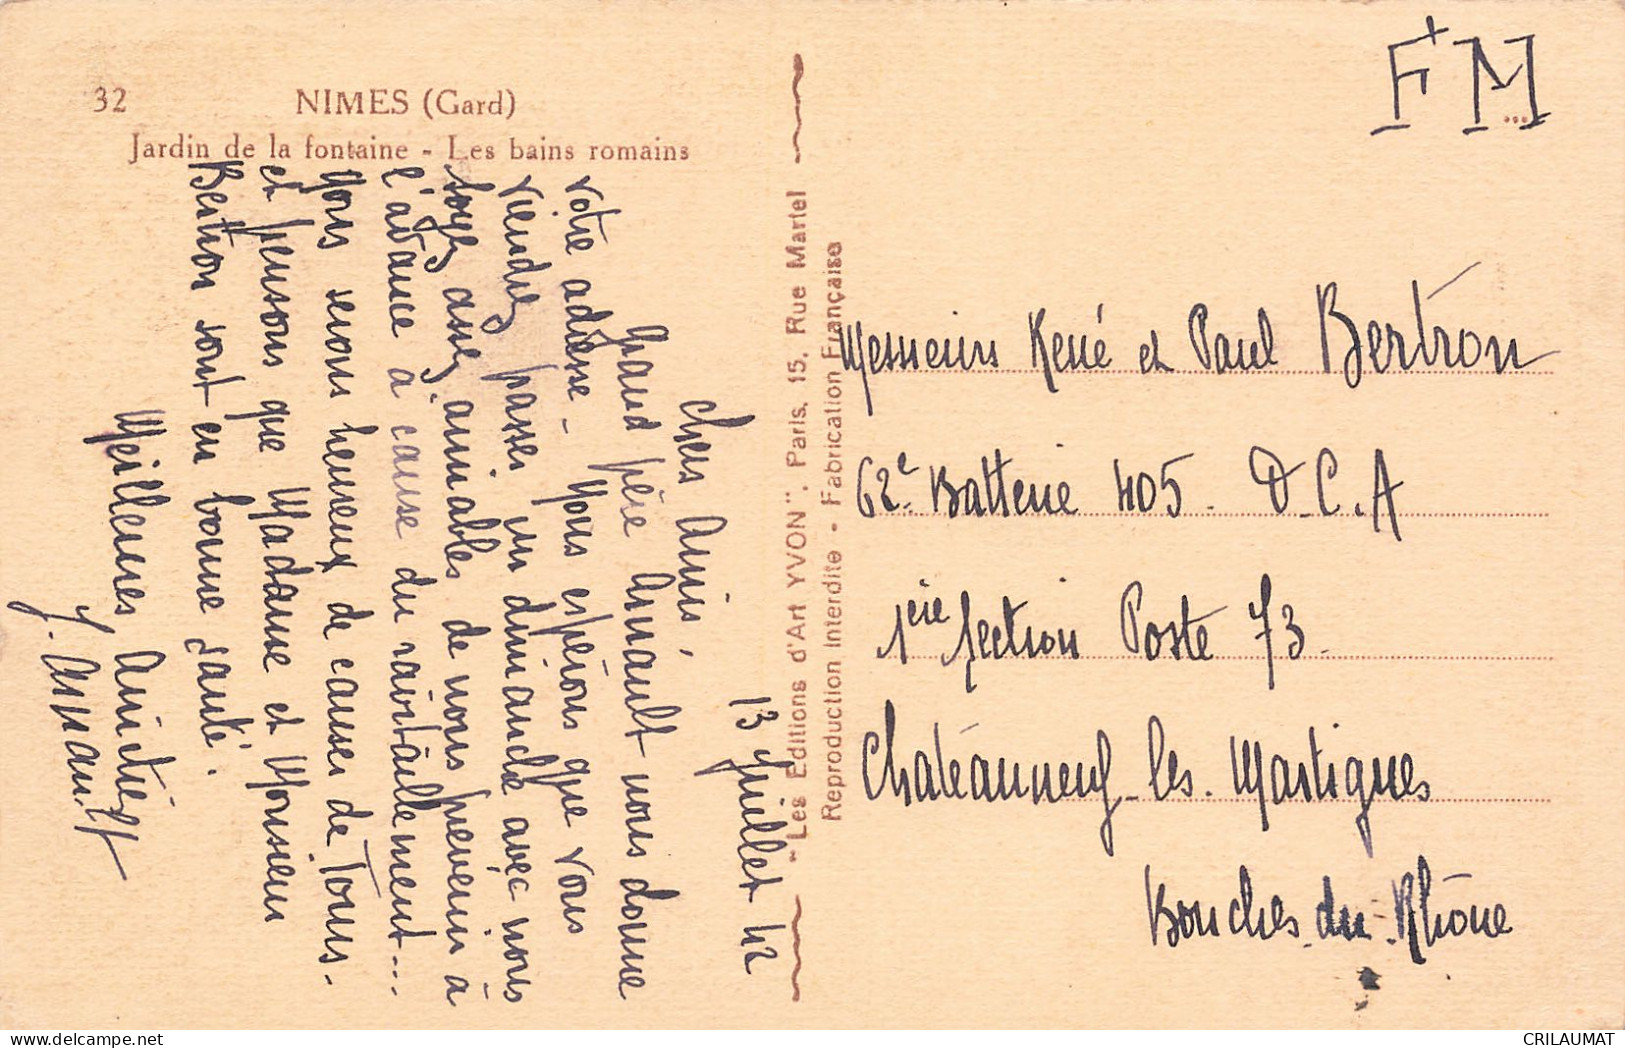 32 NIMES (Gard)
Jardin de la fontaine - Les bains romains
13 Juillet 42
Chers Amis,
Grand père Arnault nous donne
votre adresse - Nous espérons que vous
viendrez passer un dimanche avec nous
soyez assez aimables de nous prévenir à
l'avance à cause du ravitaillement...
Nous serons heureux de causer de Tous.
et pensons que Madame et Monsieur
Bertron sont en bonne santé.
Meilleures Amitiés
J. Arnault
"Les Editions d'Art YVON", Paris, 15, Rue Martel
Reproduction Interdite - Fabrication Française
F M
Messieurs René et Paul Bertron
62e Batterie 405. D.C.A
1ère Section Poste 73.
Chatéauneuf-les-Martigues
Bouches-du-Rhône
CRILAUMAT